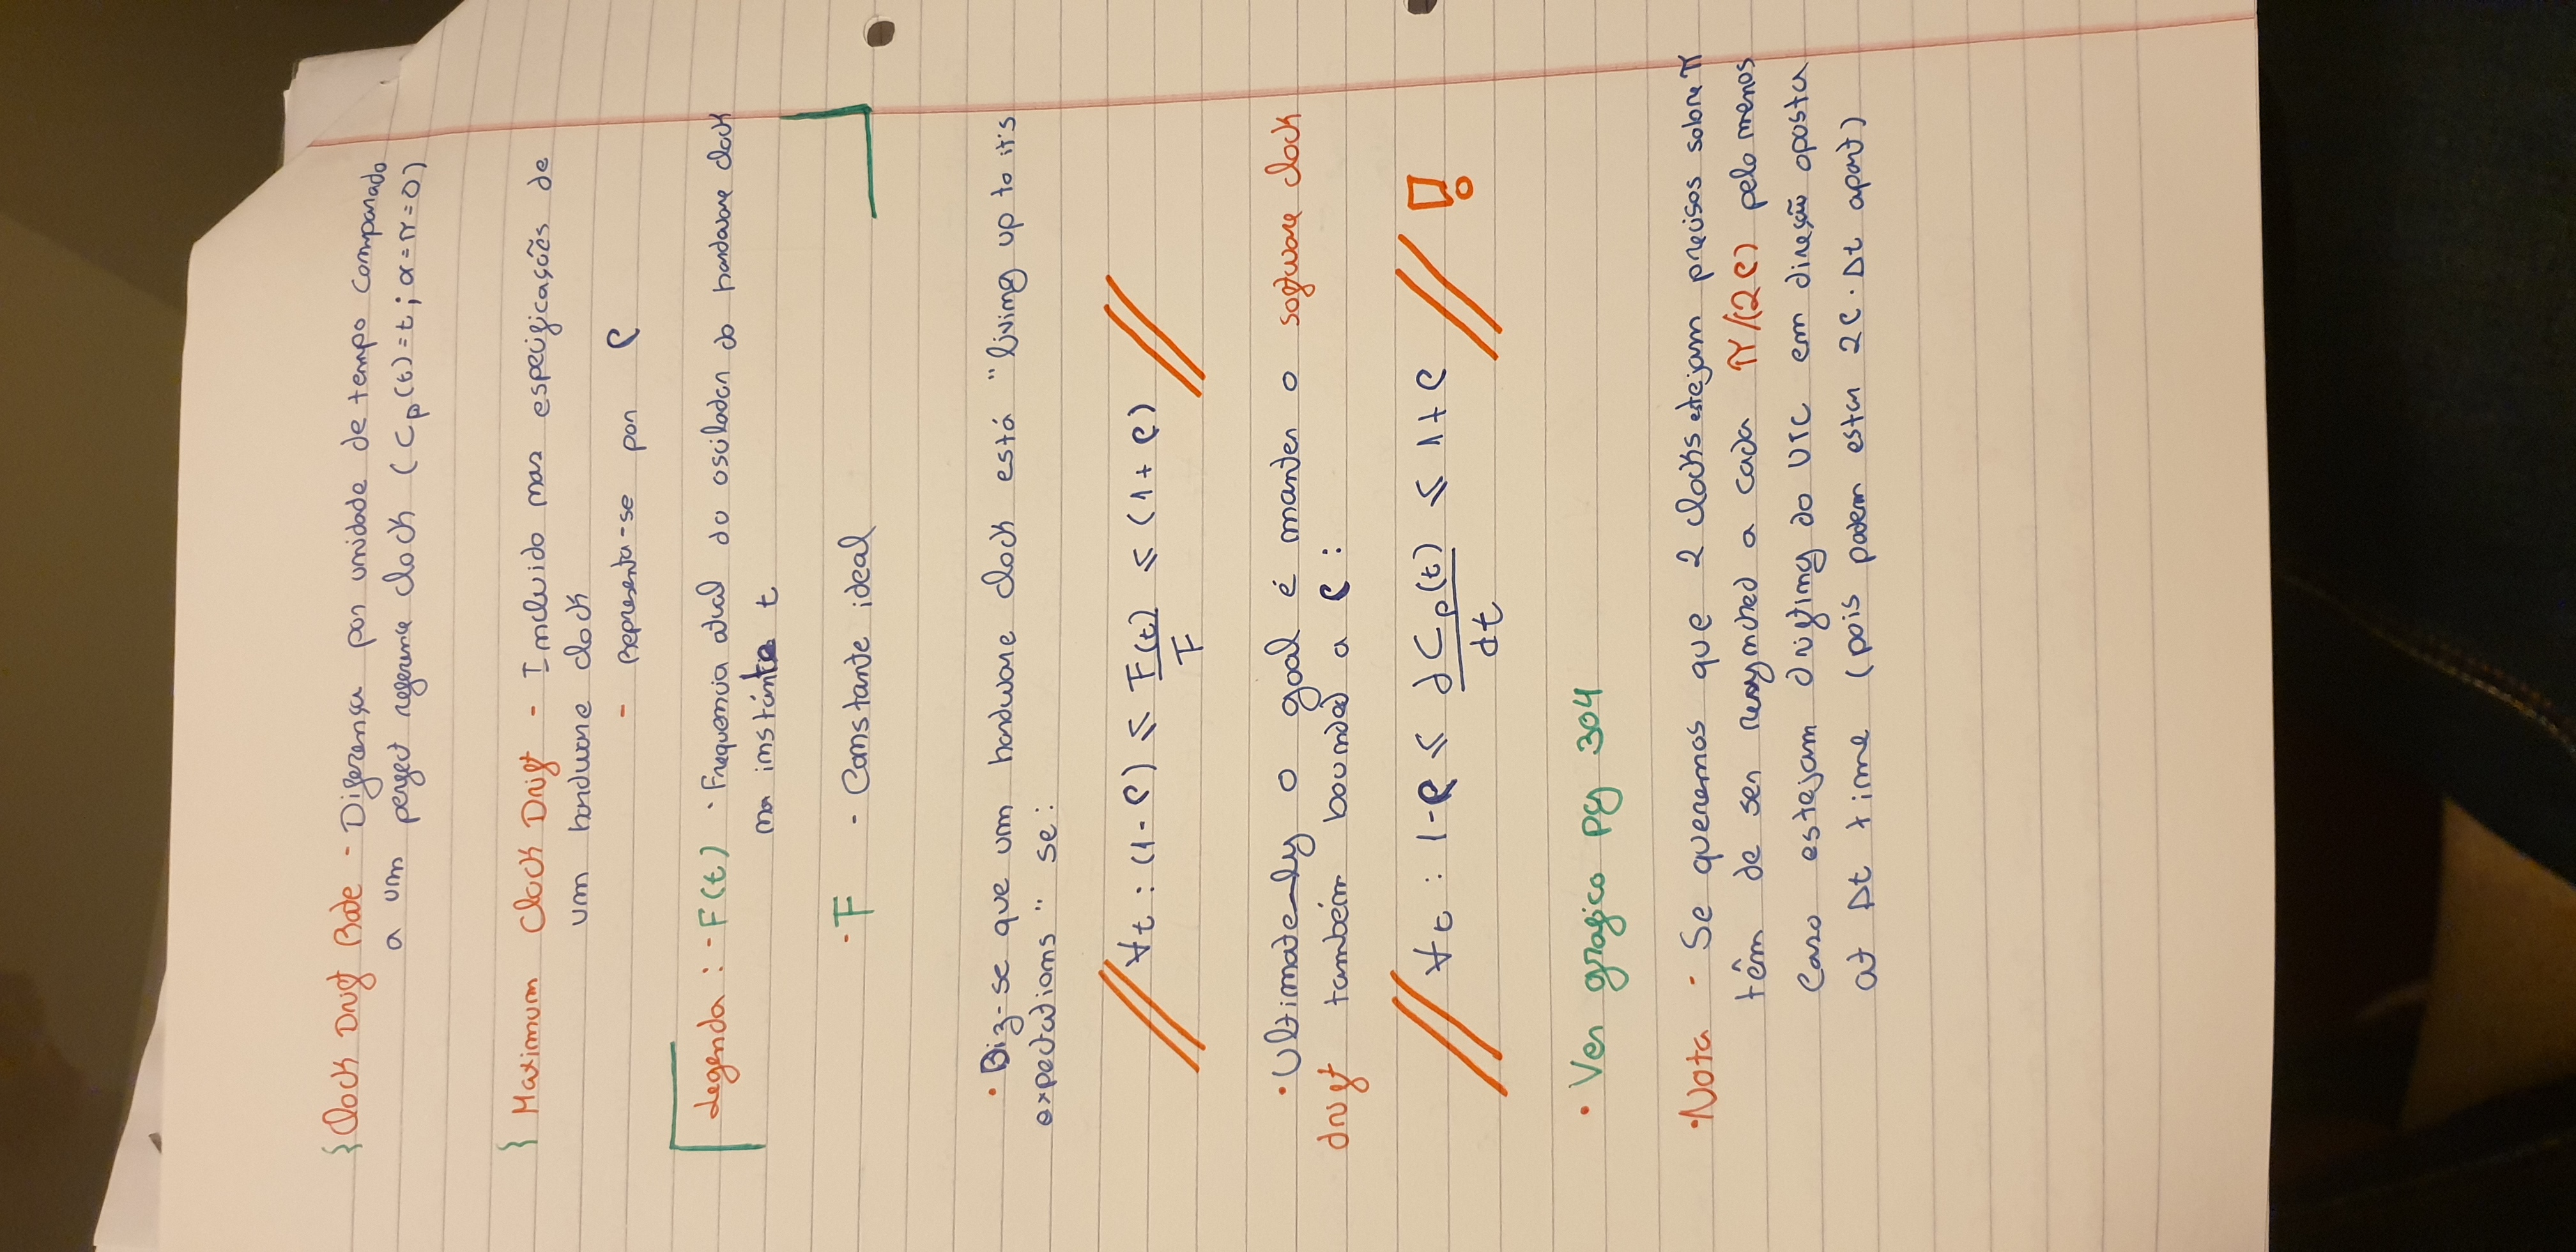 Clock Drift Rate - Diferença por unidade de tempo comparado
a um perfect reference clock (Cp(t)=t; α=π=0)
Maximum Clock Drift - Incluido nas especificações de
um hardware clock
- Representa-se por ρ
Legenda: - F(t) · Frequencia atual do oscilador do hardware clock
no instante t
- F - Constante ideal
• Diz-se que um hardware clock está "living up to it's
expectations" se:
// ∀t : (1-ρ) ≤ F(t)/F ≤ (1+ρ) //
• Ultimately o goal é manter o software clock
drift também bounded a ρ :
// ∀t : 1-ρ ≤ dCp(t)/dt ≤ 1+ρ // !
• Ver grafico pg 304
• Nota - Se queremos que 2 clocks estejam precisos sobre π
têm de ser resynched a cada π/(2ρ) pelo menos
Caso estejam drifting do UTC em direção oposta
at Δt time (pois podem estar 2ρ·Δt apart)